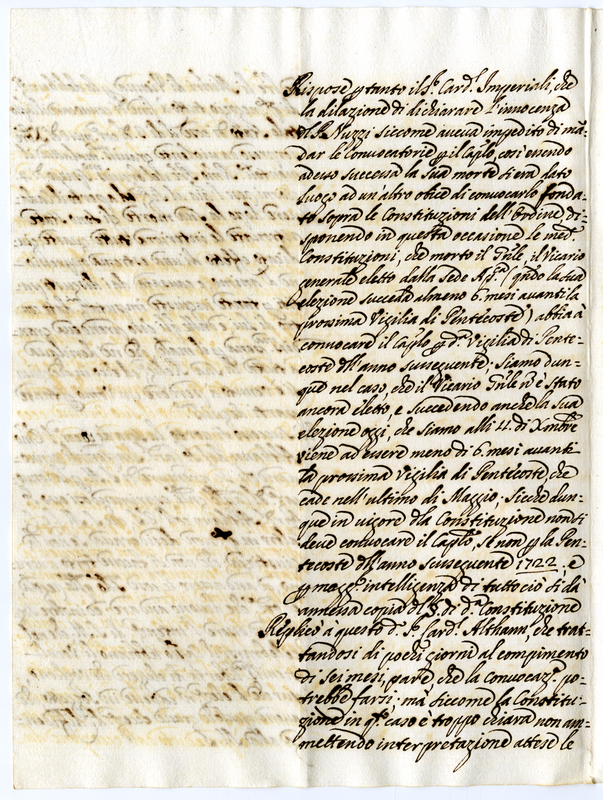 Rispose p tanto il S.r Card.l Imperiali, che
la dilazione di dichiarare l'innocenza
del P. Nuzzi siccome aveva impedito di mã=
dar le Convocatorie p il Caplo, così essendo
adesso successa la sua morte si era dato
luogo ad un'altro obice di convocarlo fonda=
to sopra le Constituzioni dell'Ordine di=
sponendo in questa occasione le med.e
Constituzioni, che morto il Gñle, il Vicario
generale eletto dalla Sede Ap.ca (qñdo la sua
elezione succeda almeno 6. mesi avanti la
prossima Vigilia di Pentecoste) abbia à
convocare il Caplo p d.a Vigilia di Pente=
coste dell'anno susseguente; siamo dun=
que nel caso, che il Vicario Gñle ñ è stato
ancora eletto, e succedendo anche la sua
elezione oggi, che siamo alli 4. di Xmbre
viene ad essere meno di 6. mesi avanti
la prossima Vigilia di Pentecoste, che
cade nell'ultimo di Maggio; sicche dun=
que in vigore dla Constituzione non si
deve convocare il Caplo, se non p la Pen=
tecoste dell'anno susseguente 1722. e
p magg.r intelligenza di tutto ciò si dà
annessa copia del §. di d.a Constituzione
Replicò à questo d.o S.r Card.l Althann, che trat=
tandosi di pochi giorni al compimento
di sei mesi, pare che la convocaz.e po=
trebbe farsi; mà siccome la Constitu=
zione in q.to caso è troppo chiara non am=
mettendo interpretazione attese le